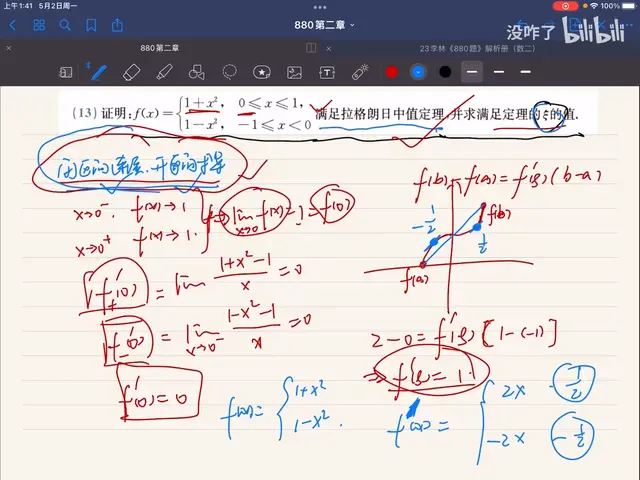 上午1:41 5月2日周一
100%
880第二章
没咋了 bilibili
880第二章
23李林《880题》解析册（数二）
(13) 证明: f(x) = { 1+x², 0≤x≤1,
1−x², −1≤x<0 满足拉格朗日中值定理,并求满足定理的ξ的值.
闭区间连续.开区间可导
x→0⁻. f(x)→1
x→0⁺ f(x)→1.
⇒ lim x→0 f(x)=1=f(0)
f'₊(0) = lim (1+x²−1)/x = 0
f'₋(0) = lim x→0⁻ (1−x²−1)/x = 0
f'(0)=0
f(b) − f(a) = f'(ξ)(b−a)
−1/2
f(b)
1/2
f(a)
2−0 = f'(ξ)[1−(−1)]
⇒ f'(ξ)=1.
f(x)= { 1+x²
1−x².
f'(x) = { 2x 1/2
−2x −1/2